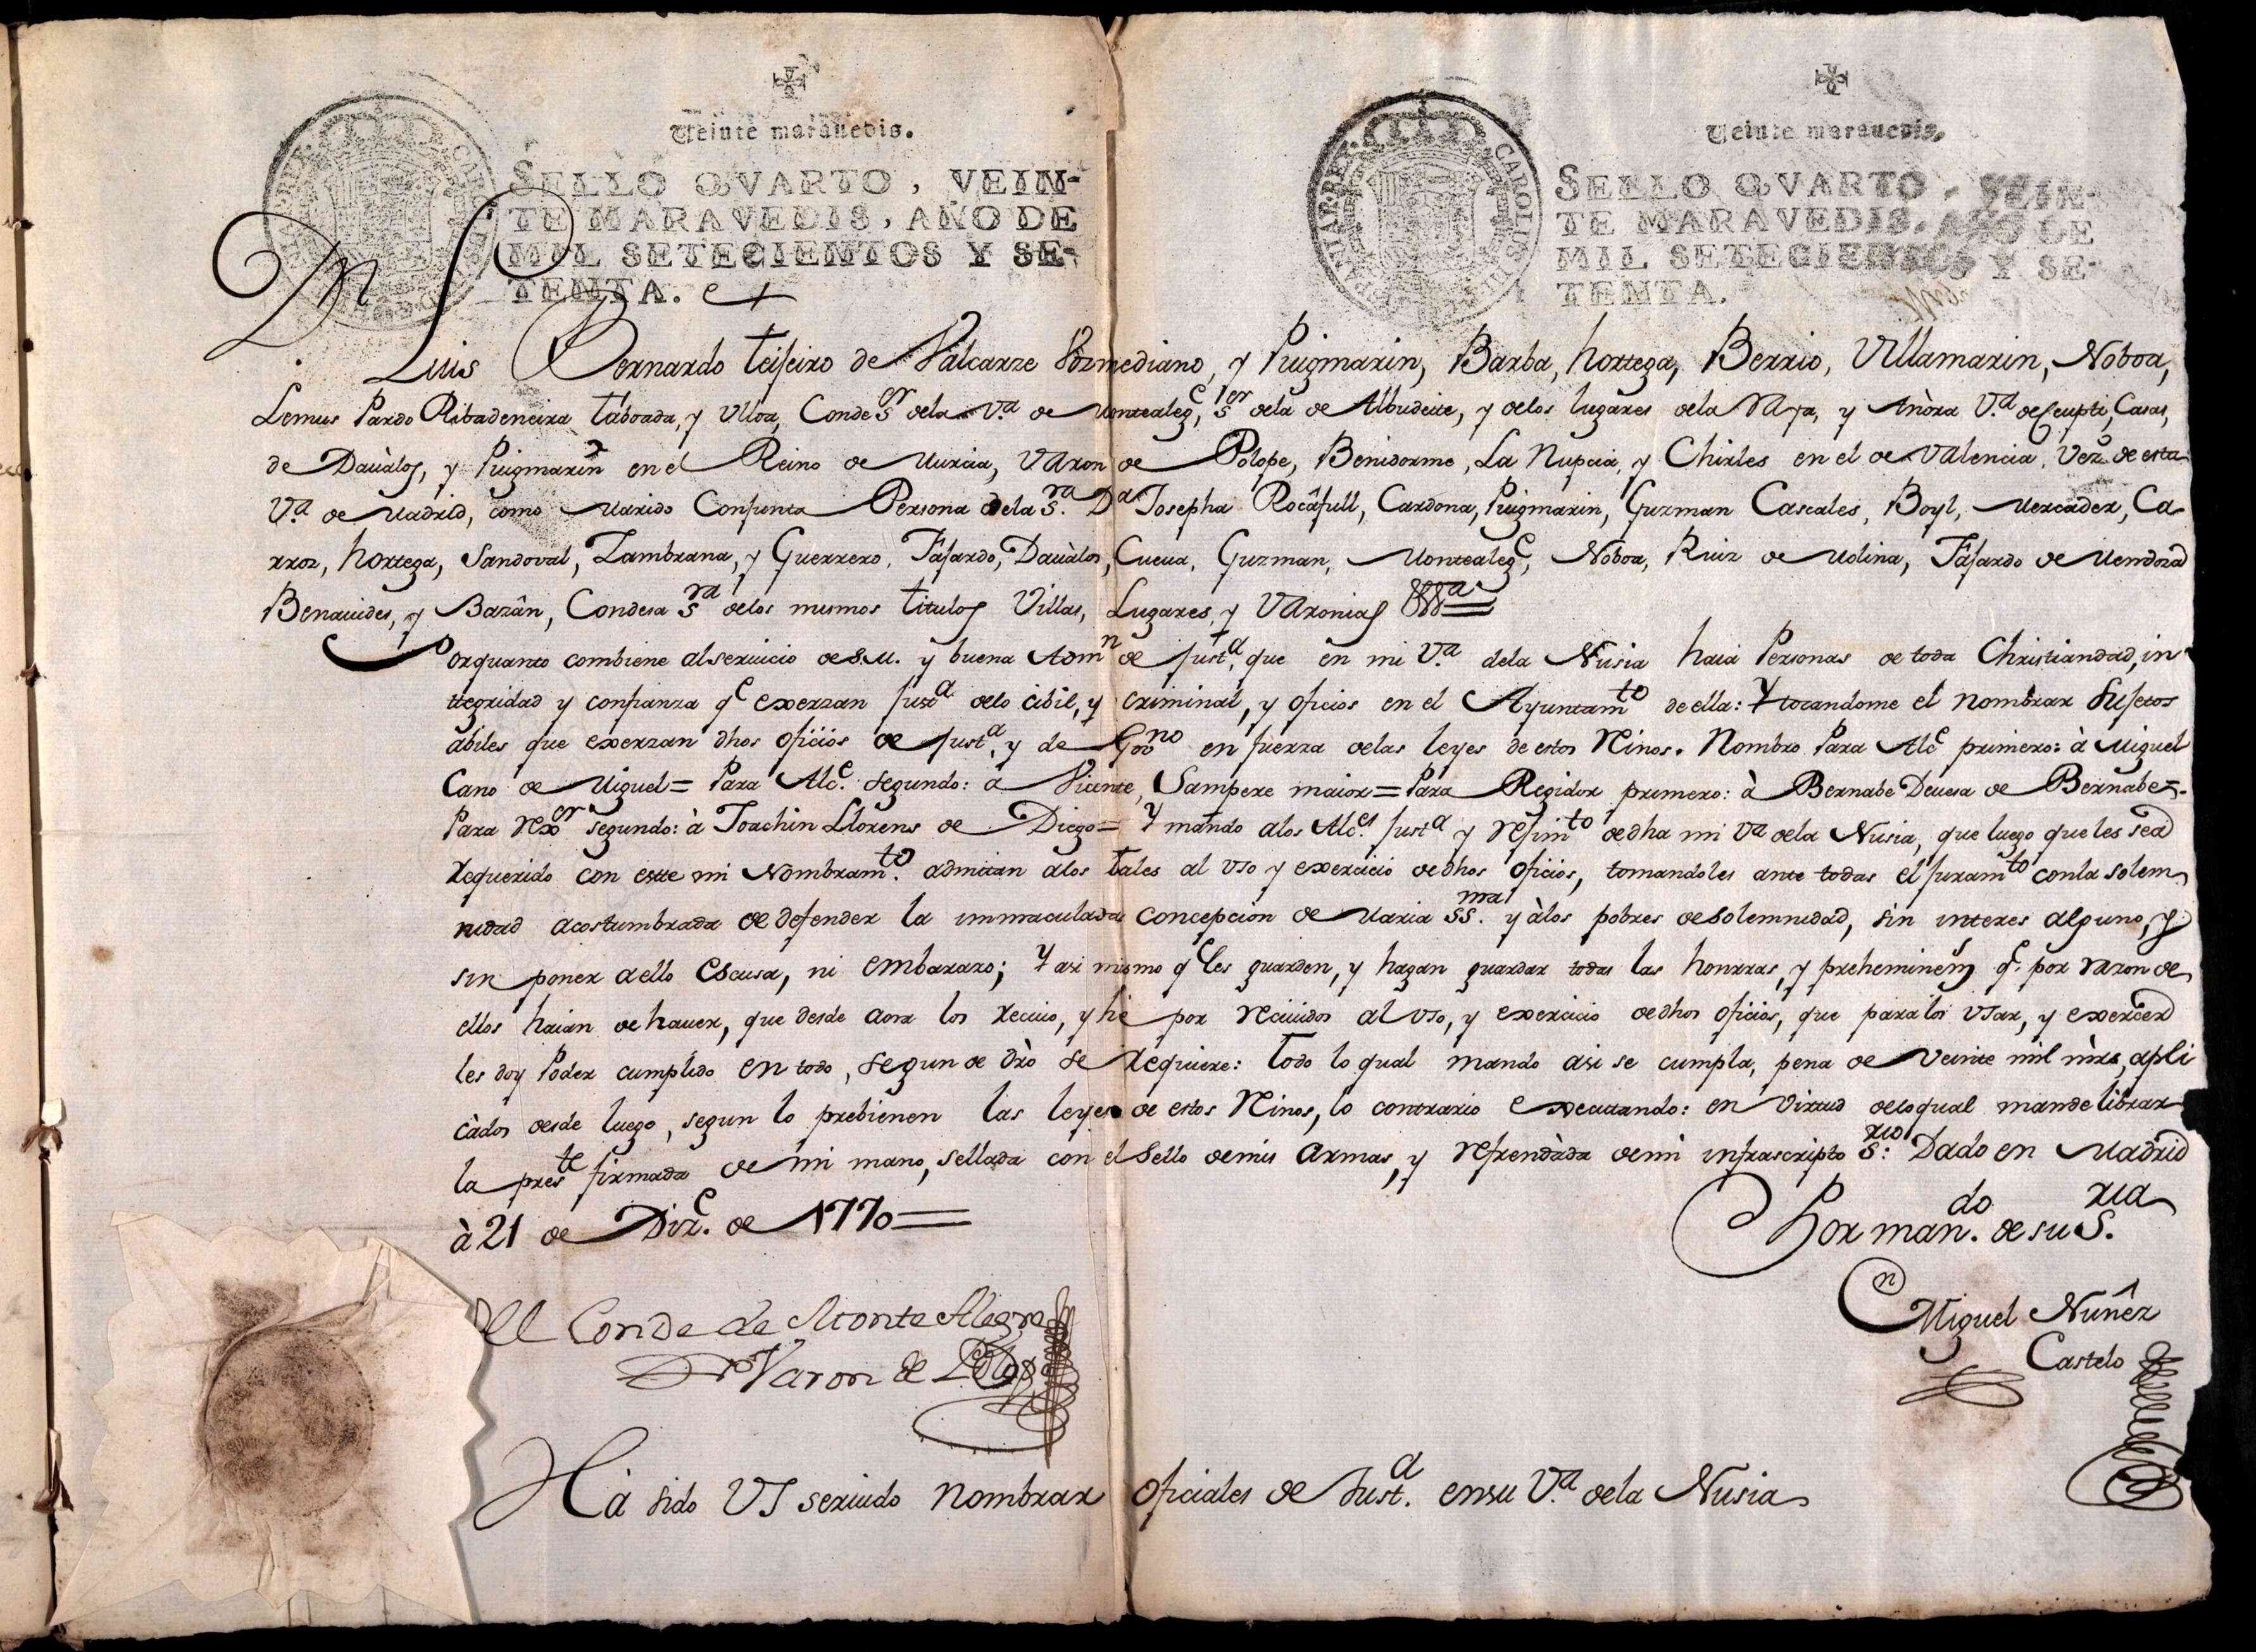 Veinte marauedis.
SELLO QVARTO, VEIN-
TE MARAVEDIS, AÑO DE
MIL SETECIENTOS Y SE-
TENTA.
Veinte marauedis.
SELLO QVARTO, VEIN-
TE MARAVEDIS, AÑO DE
MIL SETECIENTOS Y SE-
TENTA.
CAROLUS III
HISPANIAR. REX
Dn Luis Bernardo Teijeiro de Valcarze Vozmediano, y Puigmarin, Barba, hortega, Berrio, Villamarin, Noboa,
Lemus Pardo Ribadeneira taboada, y Ulloa, Conde Sor. dela Va. de Montealege, Sor dela de Albudeite, y delos lugares dela Raya, y Añòra Va. de Ceupti, Casas,
de Dauàlos, y Puigmarin en el Reino de Murcia, VAron de Polope, Benidorme, La Nupcia, y Chirles en el de VAlencia, Vezo. de esta
Va. de Madrid, como Marido Conjunta Persona dela Sra. Da Josepha Rocâfull, Cardona, Puigmarin, Guzman Cascales, Boyl, Mercader, Ca-
rroz, hortega, Sandoval, Zambrana, y Guerrero, Fajardo, Dauàlos, Cueua, Guzman, Montealege, Noboa, Ruiz de Molina, Fajardo de Mendoza
Benauides, y Bazân, Condesa Sra delos mismos titulos Villas, Lugares, y VAronias
Porquanto combiene al seruicio de S.M. y buena Admn de justa, que en mi Va. dela Nusia haia Personas de toda Christiandad, in
ttegridad y confianza qe exerzan justa delo cibil, y criminal, y oficios en el Ayuntamto de ella: Y tocandome el nombrar Sujetos
àbiles que exerzan dhos oficios de justa, y de Govno en fuerza delas leyes de estos Rinos. Nombro Para Alce primero: à Miguel
Cano de Miguel= Para Alce. segundo: à Vicente Sampere maior= Para Regidor primero: à Bernabe Deuesa de Bernabe=
Para Rexor segundo: à Joachin Llorens de Diego= Y mando alos Alces justa y Rejimto de dha mi Va dela Nusia, que luego que les sea
requerido con este mi Nombramto. admitan alos tales al vso y exercicio de dhos oficios, tomandoles ante todas el juramto con la solem-
nidad acostumbrada de defender la immaculada concepcion de Maria SSma. y àlos pobres de solemnidad, sin interes alguno, y
sin poner aello escusa, ni embarazo; Y asi mismo qe les guarden, y hagan guardar todas las honrras, y preheminens qe. por razon de
ellos haian de hauer, que desde aora los reciuio, y he por reciuidos al vso, y exercicio de dhos oficios, que para los vsar, y exercer
les doy Poder cumplido en todo, segun de dro se requiere: todo lo qual mando asi se cumpla, pena de veinte mil mrs, apli
càdos desde luego, segun lo prebienen las leyes de estos Rinos, lo contrario executando: en virtud delo qual mande librar
la preste firmada de mi mano, sellada con el Sello demis armas, y refrendàda demi infrascripto Srio: Dado en Madrid
à 21 de Dize. de 1770=
Por mando. de su Sria.
El Conde de Monte Alegre
Varon de Polop
Miguel Nuñez
Castelo
Ha sido VS seruido nombrar oficiales de Justa. en su Va. dela Nusia